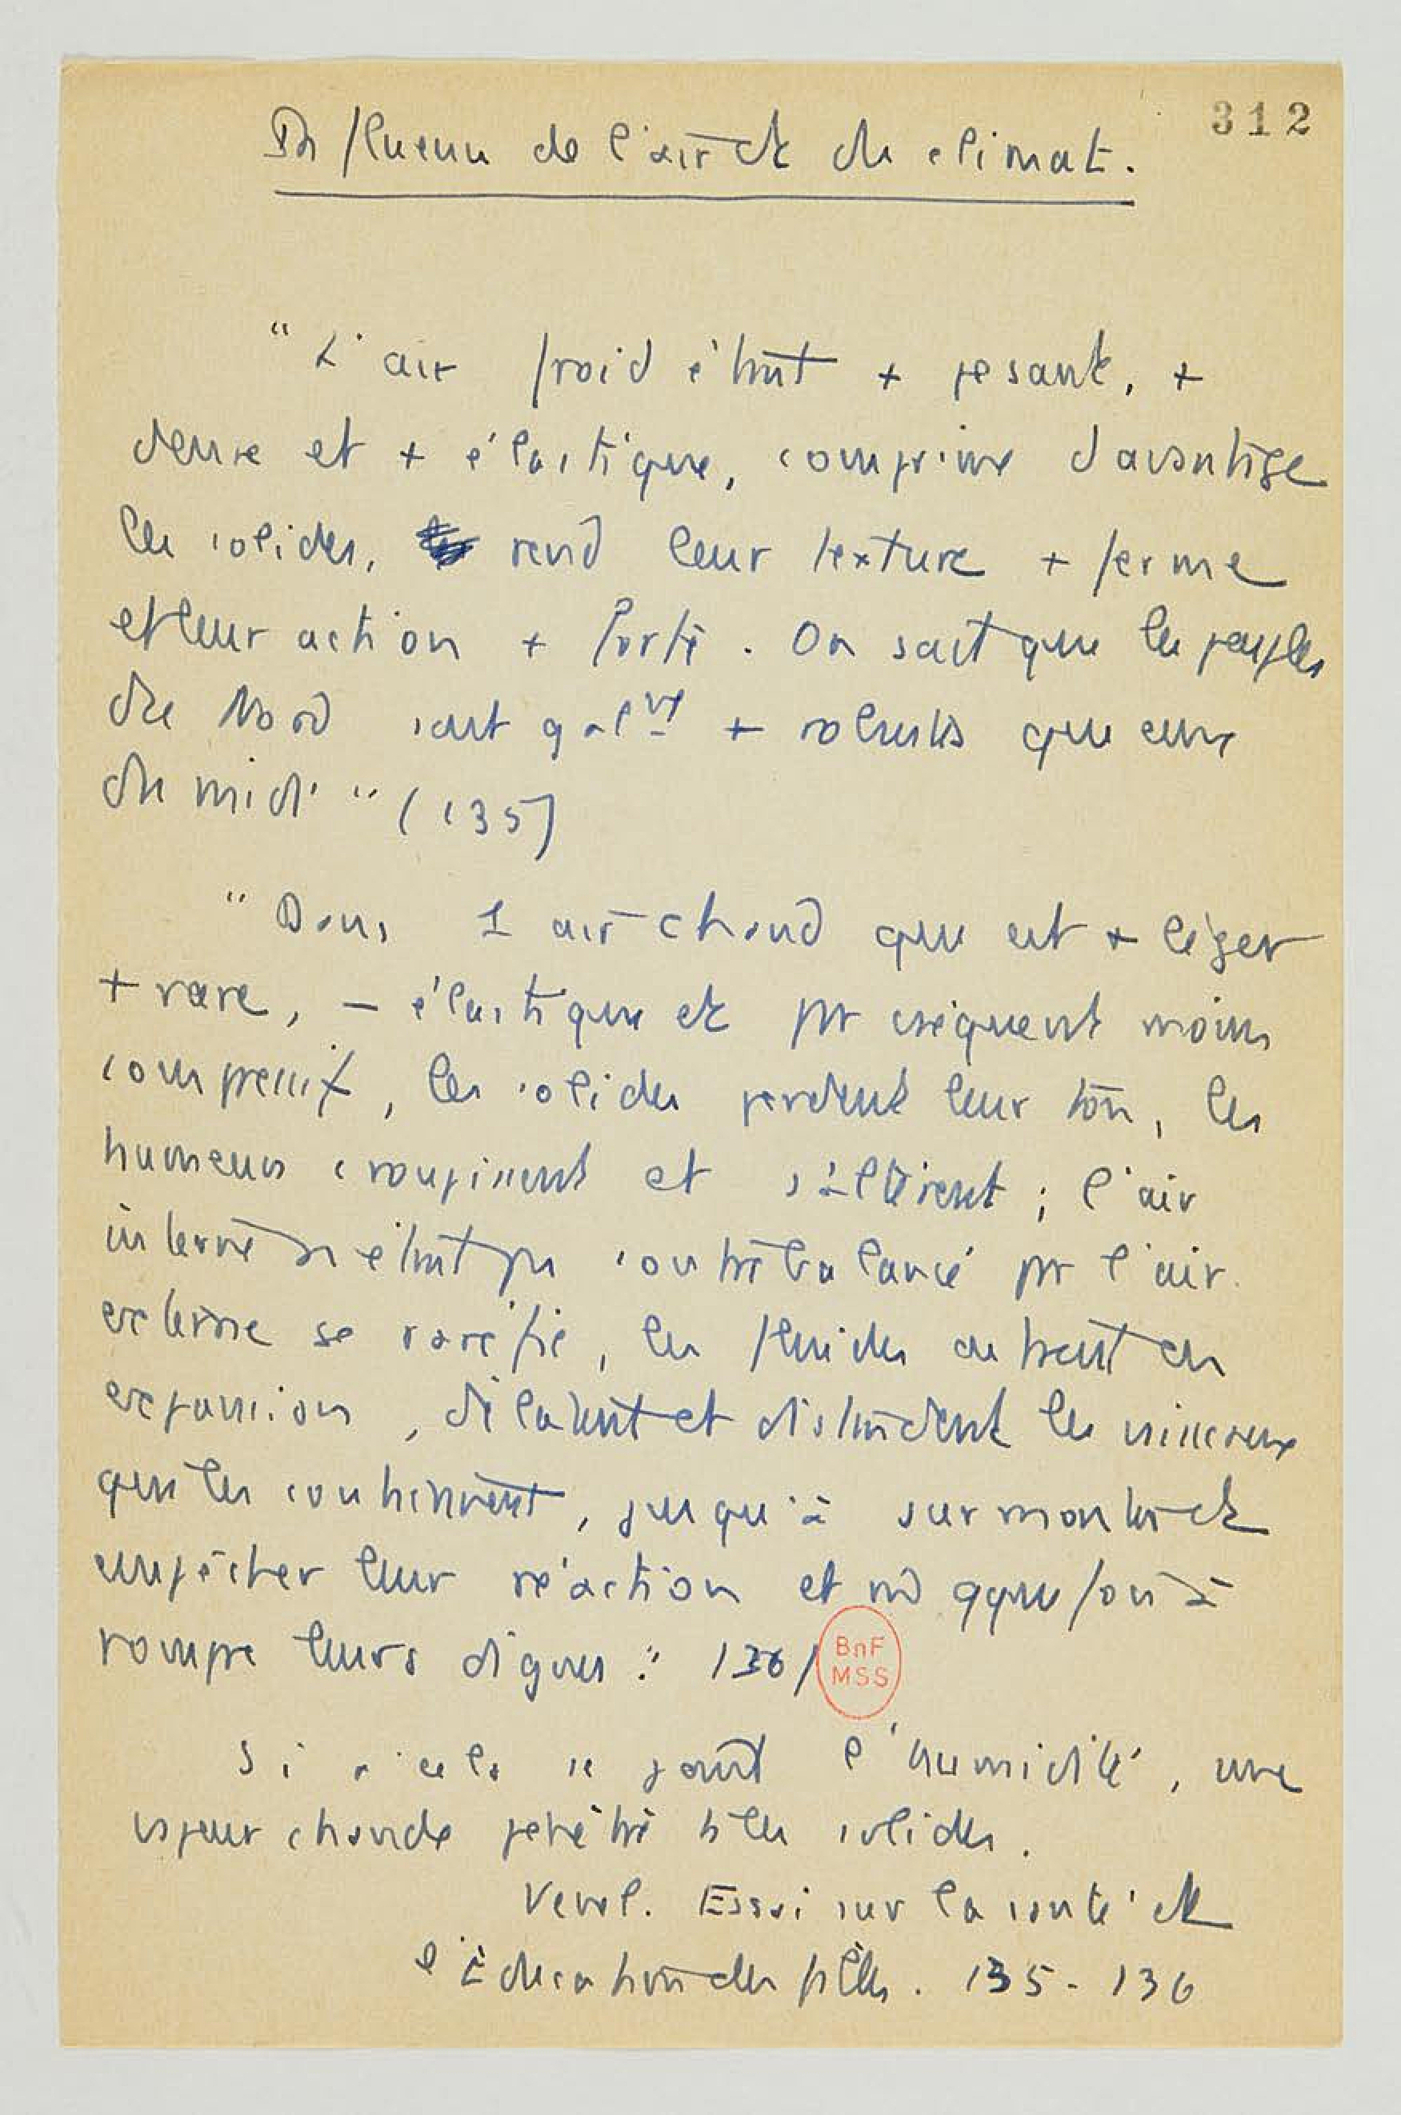 312
Influence de l'air et du climat.
"L'air froid étant + pesant, +
dense et + élastique, comprime davantage
les solides, rend leur texture + ferme
et leur action + forte. On sait que les peuples
du Nord sont galmt + robustes que ceux
du midi" (135)
"Dans 1 air chaud qui est + léger
+ rare, - élastique et pr cséquent moins
compressif, les solides perdent leur ton, les
humeurs croupissent et s'altèrent ; l'air
interne n'étant pas contrebalancé pr l'air
externe se raréfie, les fluides entrent en
expansion, dilatent et distendent les vaisseaux
qui les contiennent, jusqu'à surmonter et
empêcher leur réaction et m̂ qque fois à
rompre leurs digues." 136/
BnF
MSS
Si à cela se joint l'humidité, une
vapeur chaude pénètre ts les solides.
Venel. Essai sur la santé et
l'Éducation des filles. 135-136